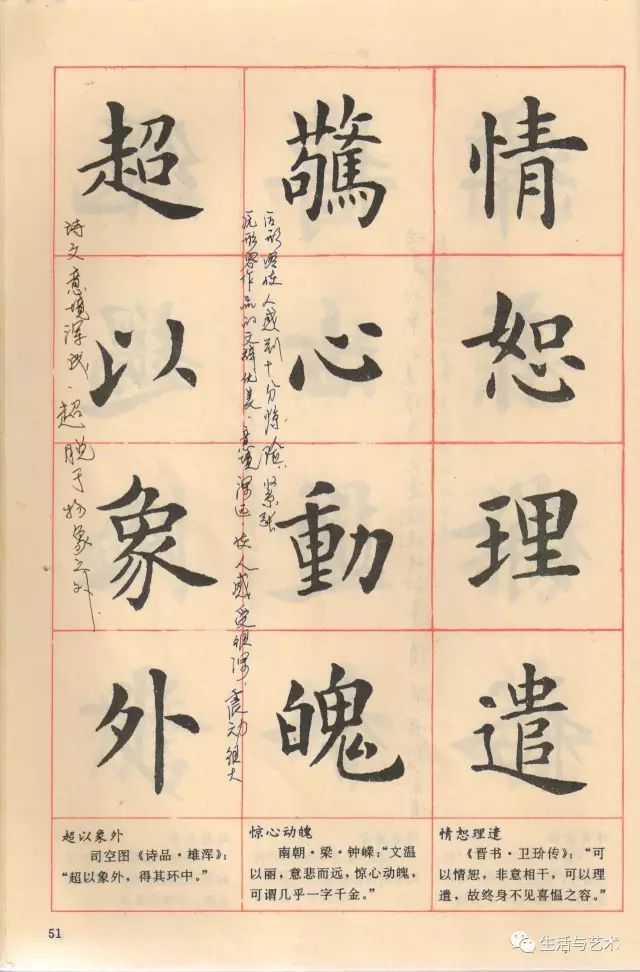 情恕理遣
驚心動魄
超以象外
后形容使人感到十分惊险、紧张
原形容作品的文辞优美，意境深远，使人感受很深，震动很大
诗文意境深，超脱于物象之外
超以象外
司空图《诗品·雄浑》：
“超以象外，得其环中。”
惊心动魄
南朝·梁·钟嵘：“文温
以丽，意悲而远，惊心动魄，
可谓几乎一字千金。”
情恕理遣
《晋书·卫玠传》：“可
以情恕，非意相干，可以理
遣，故终身不见喜愠之容。”
51
生活与艺术